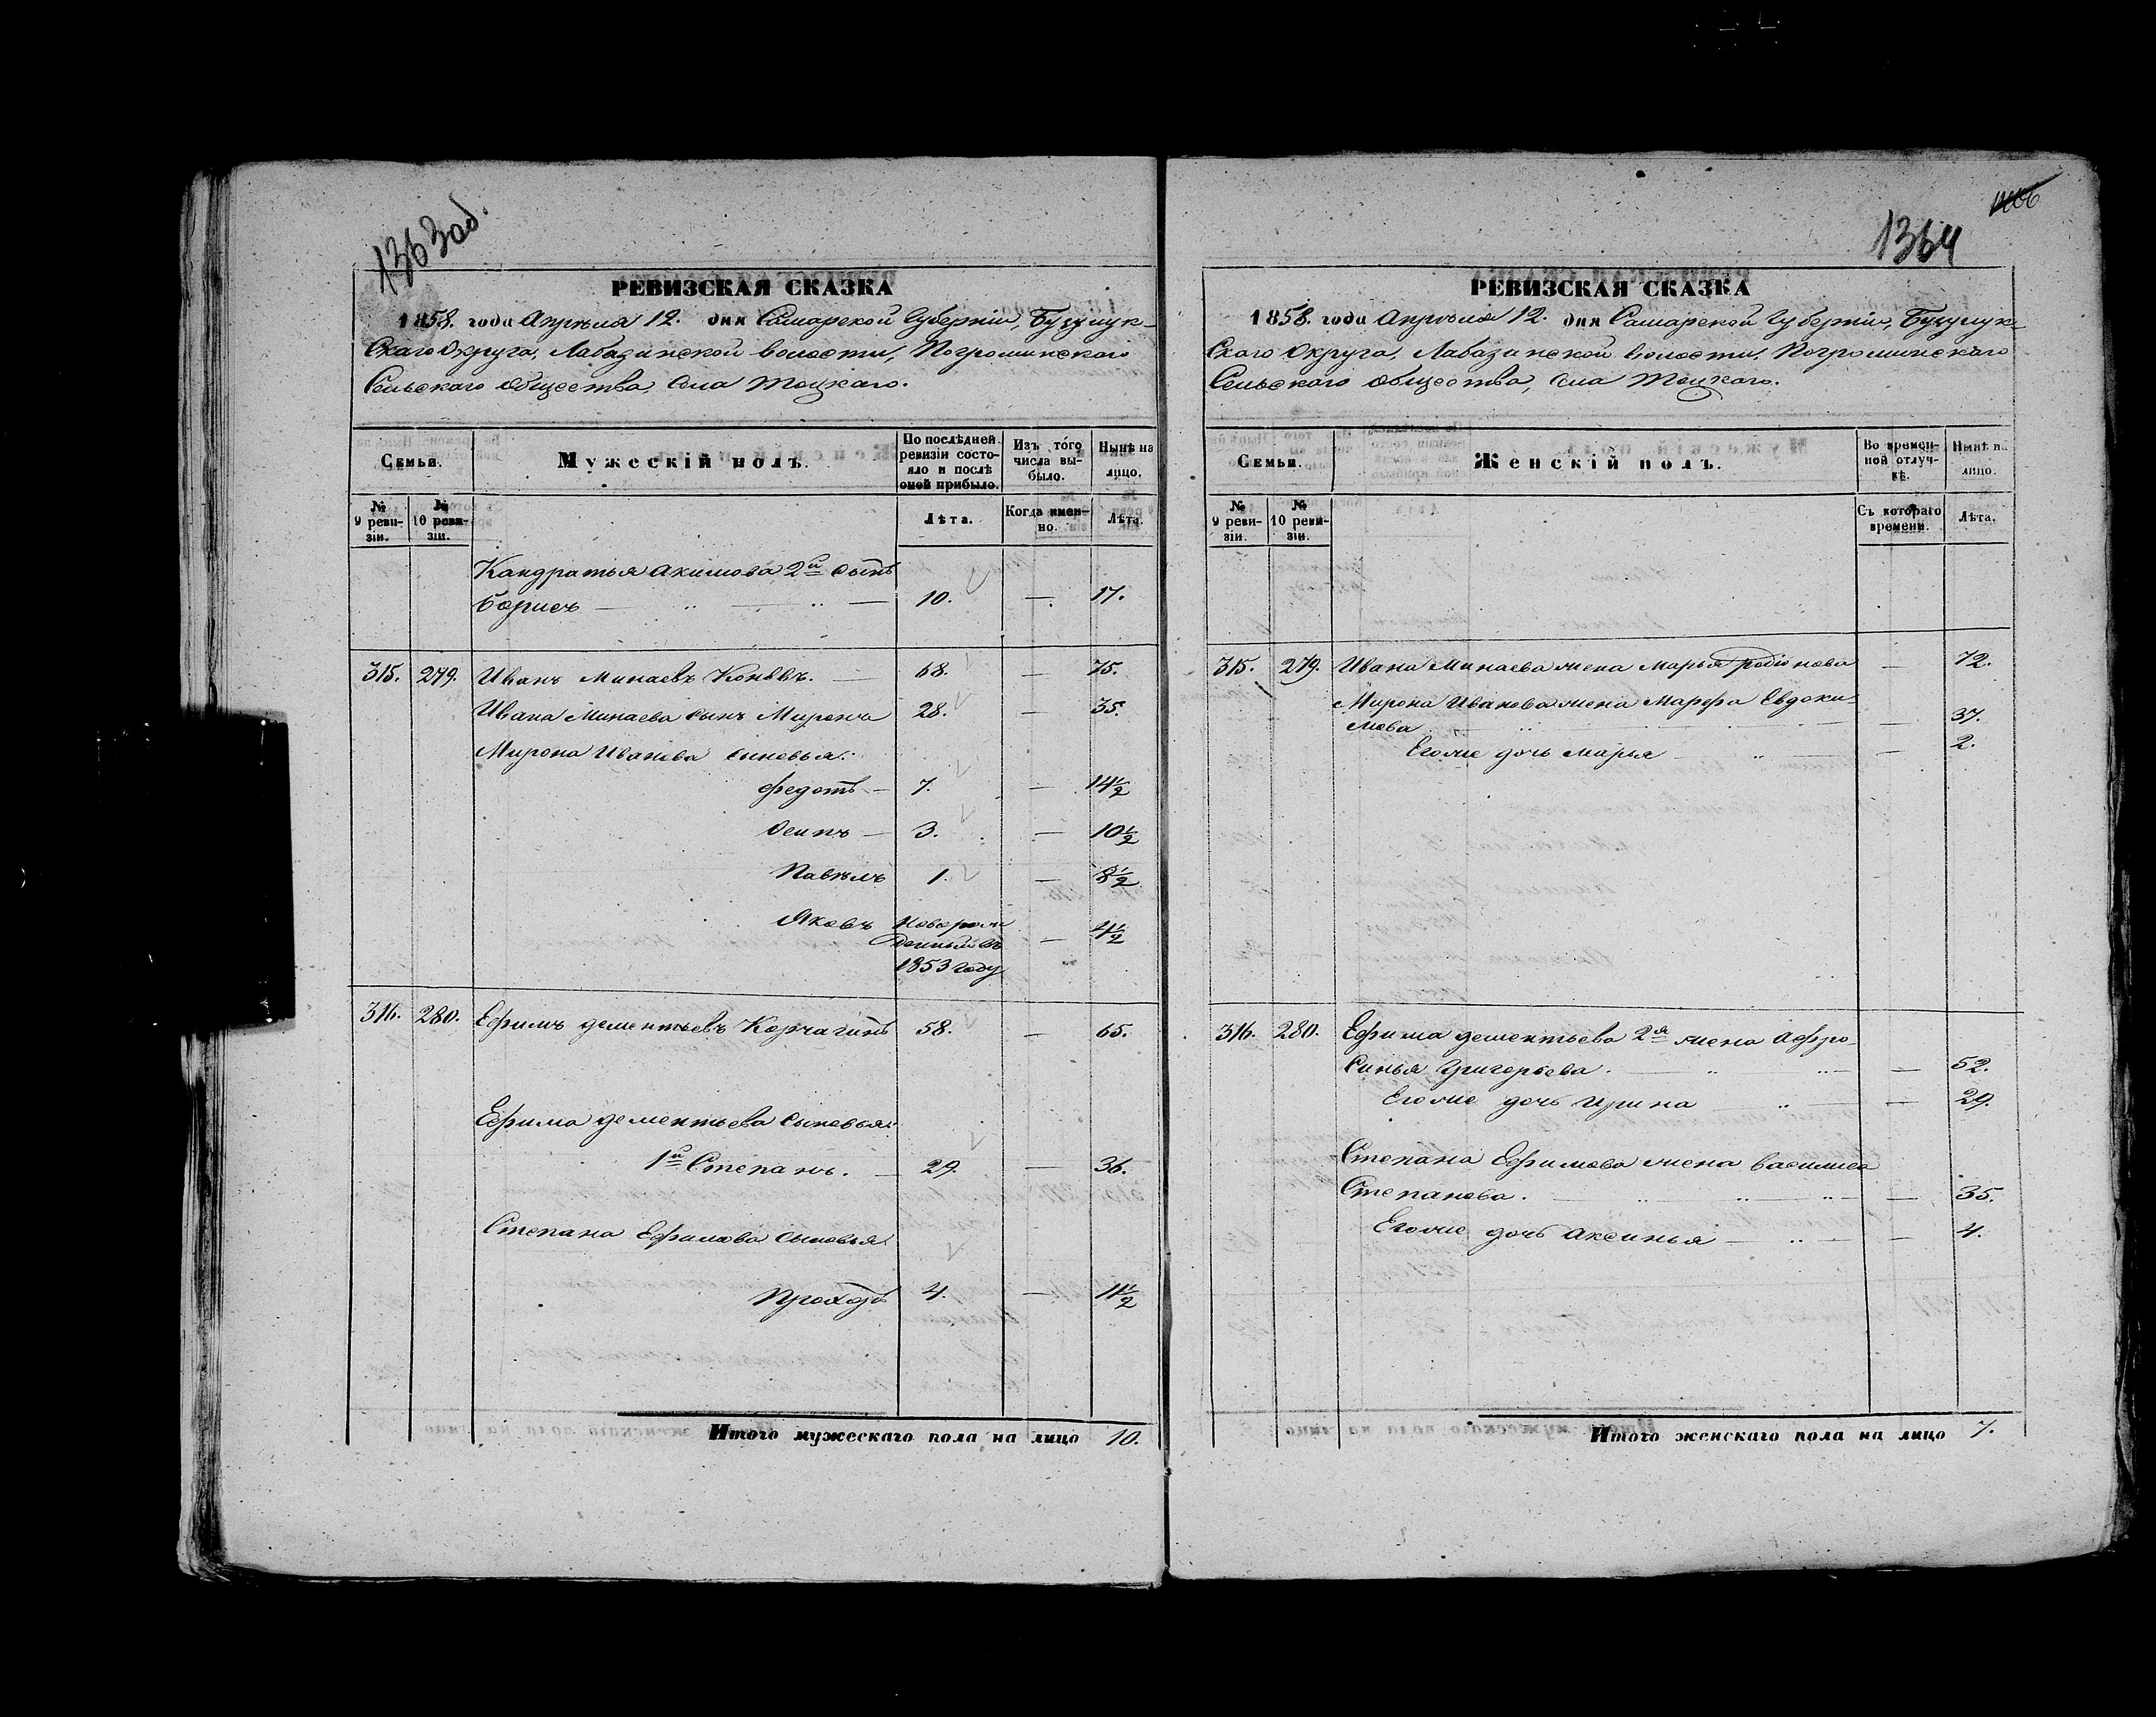 1363 об.
РЕВИЗСКАЯ СКАЗКА
1858. года Апрѣля 12. дня Самарской Губерніи, Бузулук-
Скаго Округа, Лабазинской волости, Погроминскаго
Сельскаго общества, Села Тоцкаго.
Семьи.
Мужескій полъ.
По послѣдней ревизіи состояло и послѣ оной прибыло.
Изъ того числа выбыло.
Нынѣ на лицо.
№ 9 ревизіи.
№ 10 ревизіи.
Лѣта.
Когда именно.
Лѣта.
Кандратья Акимова 2й сынъ
Борисъ — 10. — 17.
315. 279. Иванъ Минаевъ Конѣвъ. — 68. — 75.
Ивана Минаева сынъ Миронъ 28. — 35.
Мирона Иванова сыновья:
Федотъ — 7. — 14 1/2
Осипъ — 3. — 10 1/2
Павѣлъ 1. — 8 1/2
Яковъ Неворож
денный въ — 4 1/2
1853 году
316. 280. Ефимъ дементьевъ Корчагинъ 58. — 65.
Ефима дементьева сыновья:
1й Степанъ. — 29. — 36.
Степана Ефимова сыновья
Прохоръ 4. — 11 1/2
Итого мужескаго пола на лицо 10.
1364
РЕВИЗСКАЯ СКАЗКА
1858. года Апрѣля 12. дня Самарской Губерніи, Бузулук-
Скаго Округа, Лабазинской волости, Погроминскаго
Сельскаго общества, Села Тоцкаго.
Семьи.
Женскій полъ.
Во временной отлучкѣ.
Нынѣ на лицо.
№ 9 ревизіи.
№ 10 ревизіи.
Съ котораго времени.
Лѣта.
315. 279. Ивана Минаева жена Марья Родіонова — 72.
Мирона Иванова жена Марфа Евдоки-
мова — 37.
Егоже дочь Марья — 2.
316. 280. Ефима дементьева 2я жена Афро-
Синья Григорьева. — 52.
Егоже дочь Ирина — 29.
Степана Ефимова жена Василиса
Степанова. — 35.
Егоже дочь Аксинья — 4.
Итого женскаго пола на лицо 7.